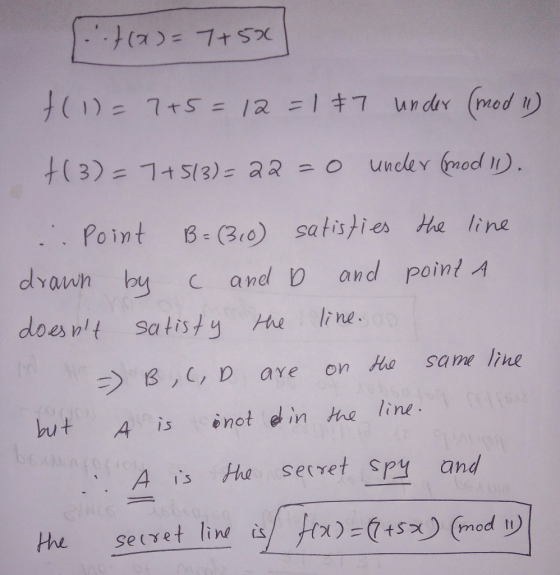 ∴ f(x) = 7+5x
f(1) = 7+5 = 12 = 1 ≠ 7 under (mod 11)
f(3) = 7+5(3) = 22 = 0 under (mod 11).
∴ Point B = (3,0) satisfies the line
drawn by C and D and point A
doesn't satisty the line.
⇒ B, C, D are on the same line
but A is not in the line.
∴ A is the secret spy and
the secret line is f(x) = (7+5x) (mod 11)